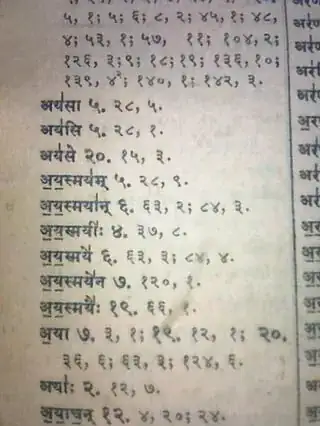 ५, १; ५; ६; ८, २; ४५, १; ४८,
४; ५३, १; ५७, ११; १०४, २;
१२६, ३; ९; १८; १९; १३६, १०;
१३९, ४; १४०, १; १४२, ३.
अय॑सा ५. २८, ५.
अय॑सि ५. २८, १.
अय॑से २०. १५, ३.
अ॒य॒स्मय॑म् ५. २८, ९.
अ॒य॒स्मया॑न् ६. ६३, २; ८४, ३.
अ॒य॒स्मयीः॑ ४. ३७, ८.
अ॒य॒स्मये॑ ६. ६३, ३; ८४, ४.
अ॒य॒स्मये॑न ७. १२०, १.
अ॒य॒स्मयैः॑ १९. ६६, १.
अ॒या ७. ३, १; १९. १२, १; २०.
३६, ६; ६३, ३; १२४, ६.
अयाः॑ २. १२, ७.
अ॒या॒च॒न् १२. ४, २०; २४.